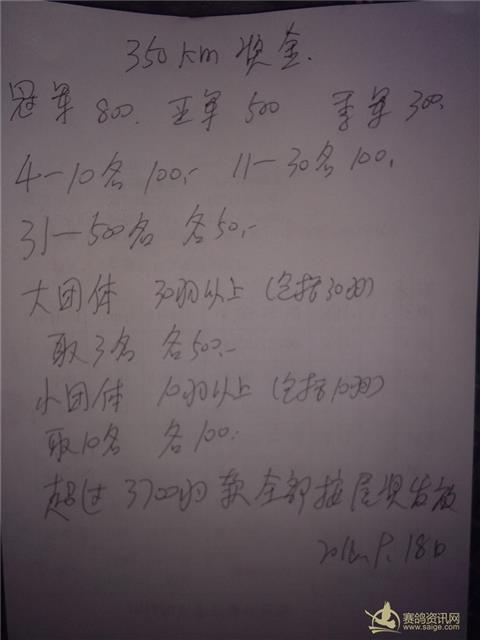 350km 奖金.
冠军 800. 亚军 500 季军 300.
4—10名 100.- 11—30名 100.
31—500名 各50.-
大团体 30羽以上 (包括30羽)
取3名 各500.-
小团体 10羽以上 (包括10羽)
取10名 各100.
超过 3700羽 款全部按尾奖发放
18日
赛鸽资讯网
www.saige.com